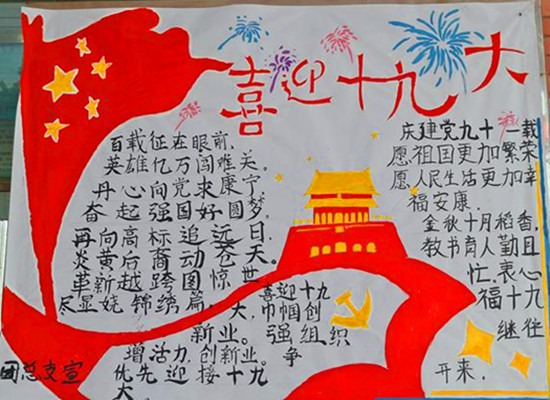 喜迎十九大
百载征在眼前,
英雄亿万闯难关
丹心向党求康宁
奋起强国好圆梦
再向高标追远日
炎黄后裔动苍天
革新越跨图惊世
尽显娆锦绣篇,大
新业。
增活力,创新业。
优先迎接十九
大。
喜迎十九
巾帼创
强组织
争
团总支宣
庆建党九十一载
愿祖国更加繁荣
愿人民生活更加幸
福安康.
金秋十月稻香,
教书育人勤且
忙,衷心
福十九
继往
开来,